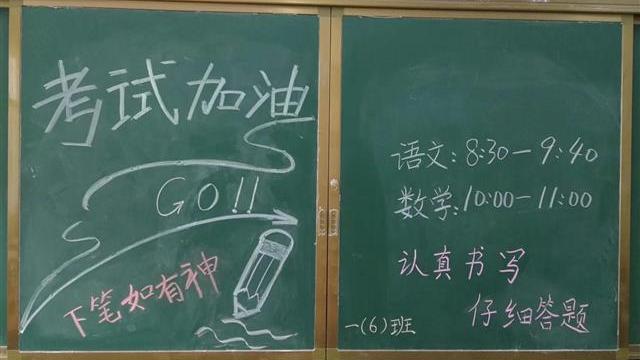 考试加油
GO!!
下笔如有神
语文:8:30-9:40
数学:10:00-11:00
认真书写
仔细答题
一(6)班